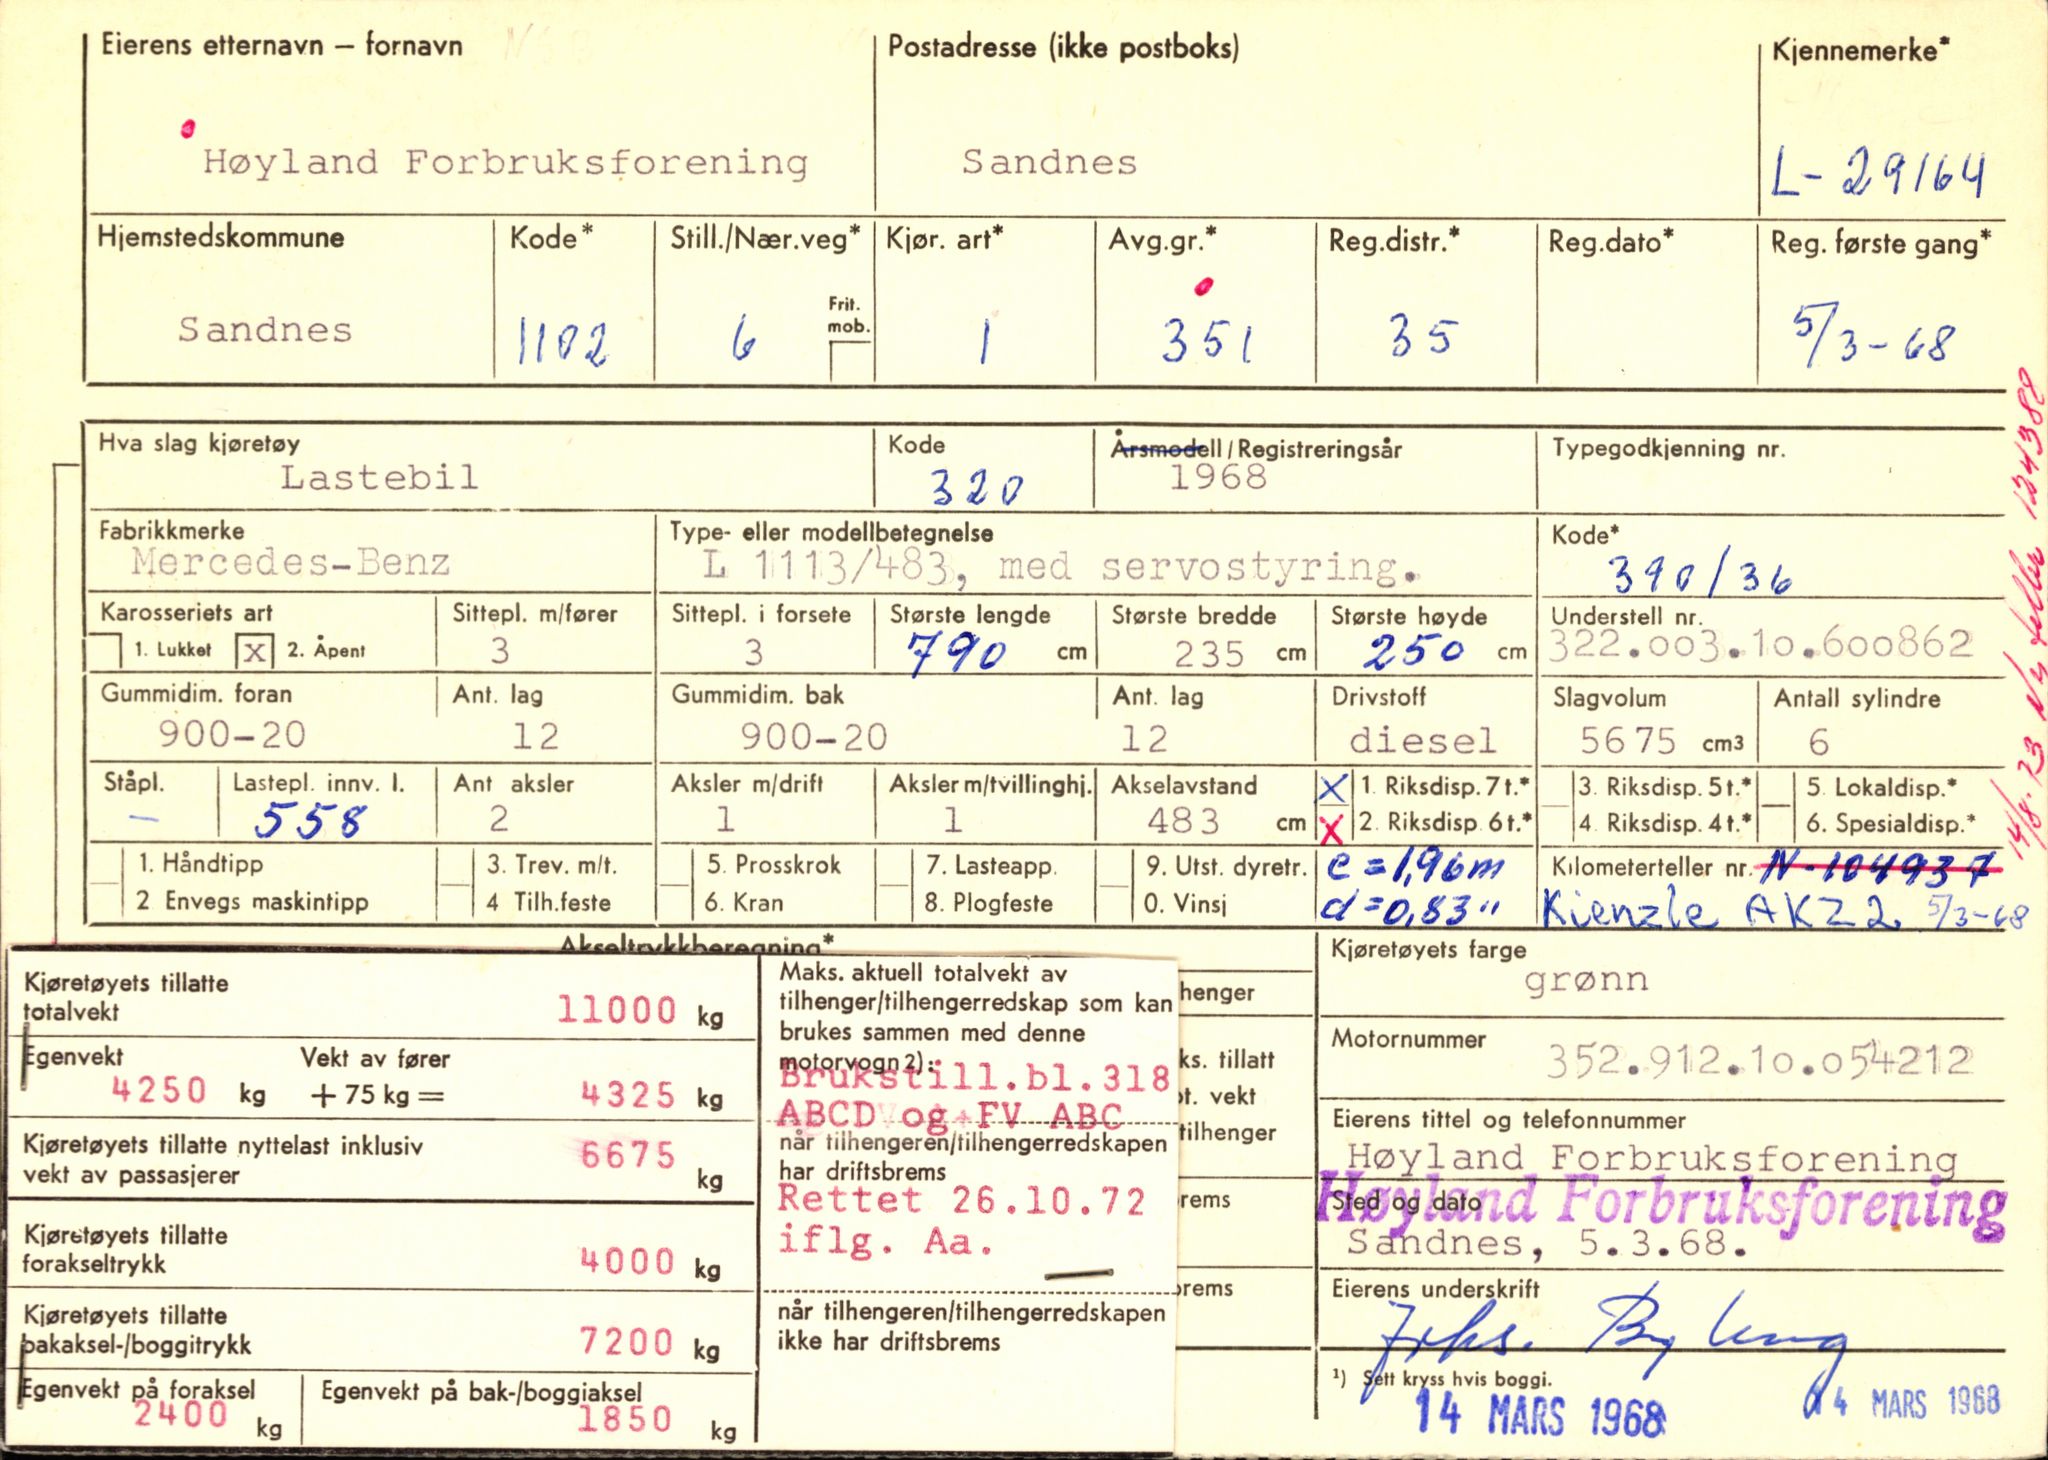 Eierens etternavn – fornavn
Postadresse (ikke postboks)
Kjennemerke*
Høyland Forbruksforening
Sandnes
L- 29164
Hjemstedskommune
Kode*
Still./Nær.veg*
Kjør. art*
Avg.gr.*
Reg.distr.*
Reg.dato*
Reg. første gang*
Frit.
mob.
Sandnes
1102
6
1
351
35
5/3-68
Hva slag kjøretøy
Kode
Årsmodell/Registreringsår
Typegodkjenning nr.
Lastebil
320
1968
Fabrikkmerke
Type- eller modellbetegnelse
Kode*
Mercedes-Benz
L 1113/483, med servostyring.
390/36
Karosseriets art
Sittepl. m/fører
Sittepl. i forsete
Største lengde
Største bredde
Største høyde
Understell nr.
1. Lukket
x
2. Åpent
3
3
790 cm
235 cm
250 cm
322.003.10.600862
Gummidim. foran
Ant. lag
Gummidim. bak
Ant. lag
Drivstoff
Slagvolum
Antall sylindre
900-20
12
900-20
12
diesel
5675 cm3
6
Ståpl.
Lastepl. innv. l.
Ant aksler
Aksler m/drift
Aksler m/tvillinghj.
Akselavstand
X 1. Riksdisp. 7 t.*
3. Riksdisp. 5 t.*
5. Lokaldisp.*
–
558
2
1
1
483 cm
X 2. Riksdisp. 6 t.*
4. Riksdisp. 4 t.*
6. Spesialdisp.*
1. Håndtipp
3. Trev. m/t.
5. Prosskrok
7. Lasteapp.
9. Utst. dyretr.
e = 1,96m
Kilometerteller nr. N-104937
2 Envegs maskintipp
4 Tilh.feste
6. Kran
8. Plogfeste
0. Vinsj
d = 0,83"
Kienzle AKZ2 5/3-68
14/8-73 Ny teller 134388
Akseltrykkberegning*
Kjøretøyets farge
grønn
Kjøretøyets tillatte
totalvekt
11000 kg
Egenvekt
Vekt av fører
4250 kg
+ 75 kg =
4325 kg
Kjøretøyets tillatte nyttelast inklusiv
vekt av passasjerer
6675 kg
Kjøretøyets tillatte
forakseltrykk
4000 kg
Kjøretøyets tillatte
bakaksel-/boggitrykk
7200 kg
Egenvekt på foraksel
2400 kg
Egenvekt på bak-/boggiaksel
1850 kg
Maks. aktuell totalvekt av
tilhenger/tilhengerredskap som kan
brukes sammen med denne
motorvogn 2):
Brukstill.bl.318
ABCD og FV ABC
når tilhengeren/tilhengerredskapen
har driftsbrems
Rettet 26.10.72
iflg. Aa.
når tilhengeren/tilhengerredskapen
ikke har driftsbrems
henger
ks. tillatt
t. vekt
tilhenger
rems
rems
Motornummer
352.912.10.054212
Eierens tittel og telefonnummer
Høyland Forbruksforening
Høyland Forbruksforening
Sted og dato
Sandnes, 5.3.68.
Eierens underskrift
1) Sett kryss hvis boggi.
14 MARS 1968
14 MARS 1968